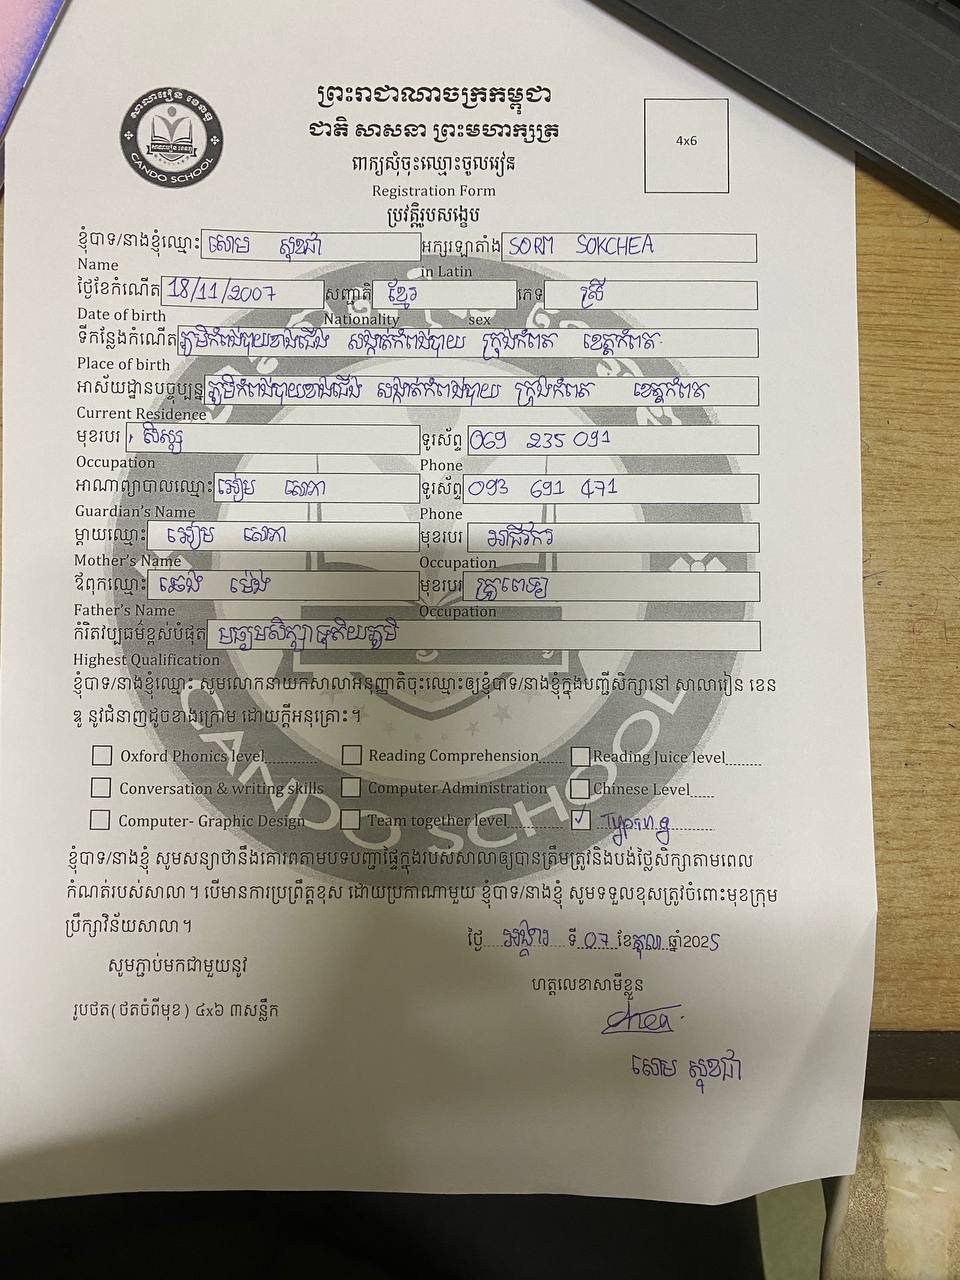 សាលារៀន ខេនឌូ
CANDO SCHOOL
ព្រះរាជាណាចក្រកម្ពុជា
ជាតិ សាសនា ព្រះមហាក្សត្រ
4x6
ពាក្យសុំចុះឈ្មោះចូលរៀន
Registration Form
ប្រវត្តិរូបសង្ខេប
ខ្ញុំបាទ/នាងខ្ញុំឈ្មោះ សោម សុខជា អក្សរឡាតាំង SORM SOKCHEA
Name in Latin
ថ្ងៃខែកំណើត 18/11/2007 សញ្ជាតិ ខ្មែរ ភេទ ស្រី
Date of birth Nationality sex
ទីកន្លែងកំណើត ភូមិកំពង់បាយខាងជើង សង្កាត់កំពង់បាយ ក្រុងកំពត ខេត្តកំពត
Place of birth
អាស័យដ្ឋានបច្ចុប្បន្ន ភូមិកំពង់បាយខាងជើង សង្កាត់កំពង់បាយ ក្រុងកំពត ខេត្តកំពត
Current Residence
មុខរបរ សិស្ស ទូរស័ព្ទ 069 235 091
Occupation Phone
អាណាព្យាបាលឈ្មោះ អៀម សោភា ទូរស័ព្ទ 093 691 471
Guardian's Name Phone
ម្ដាយឈ្មោះ អៀម សោភា មុខរបរ អាជីវករ
Mother's Name Occupation
ឪពុកឈ្មោះ ឆេង ម៉េង មុខរបរ គ្រូពេទ្យ
Father's Name Occupation
កំរិតវប្បធម៌ខ្ពស់បំផុត មធ្យមសិក្សាទុតិយភូមិ
Highest Qualification
ខ្ញុំបាទ/នាងខ្ញុំឈ្មោះ សូមលោកនាយកសាលាអនុញ្ញាតិចុះឈ្មោះឲ្យខ្ញុំបាទ/នាងខ្ញុំក្នុងបញ្ជីសិក្សានៅ សាលារៀន ខេន
ឌូ នូវជំនាញដូចខាងក្រោម ដោយក្ដីអនុគ្រោះ។
Oxford Phonics level Reading Comprehension Reading Juice level
Conversation & writing skills Computer Administration Chinese Level
Computer- Graphic Design Team together level ✓ Typing
ខ្ញុំបាទ/នាងខ្ញុំ សូមសន្យាថានឹងគោរពតាមបទបញ្ជាផ្ទៃក្នុងរបស់សាលាឲ្យបានត្រឹមត្រូវនិងបង់ថ្លៃសិក្សាតាមពេល
កំណត់របស់សាលា។ បើមានការប្រព្រឹត្តខុស ដោយប្រកាណាមួយ ខ្ញុំបាទ/នាងខ្ញុំ សូមទទួលខុសត្រូវចំពោះមុខក្រុម
ប្រឹក្សាវិន័យសាលា។
ថ្ងៃ អង្គារ ទី 07 ខែ តុលា ឆ្នាំ2025
សូមភ្ជាប់មកជាមួយនូវ
ហត្ថលេខាសាមីខ្លួន
រូបថត(ថតចំពីមុខ) ៤x៦ ៣សន្លឹក
chea
សោម សុខជា